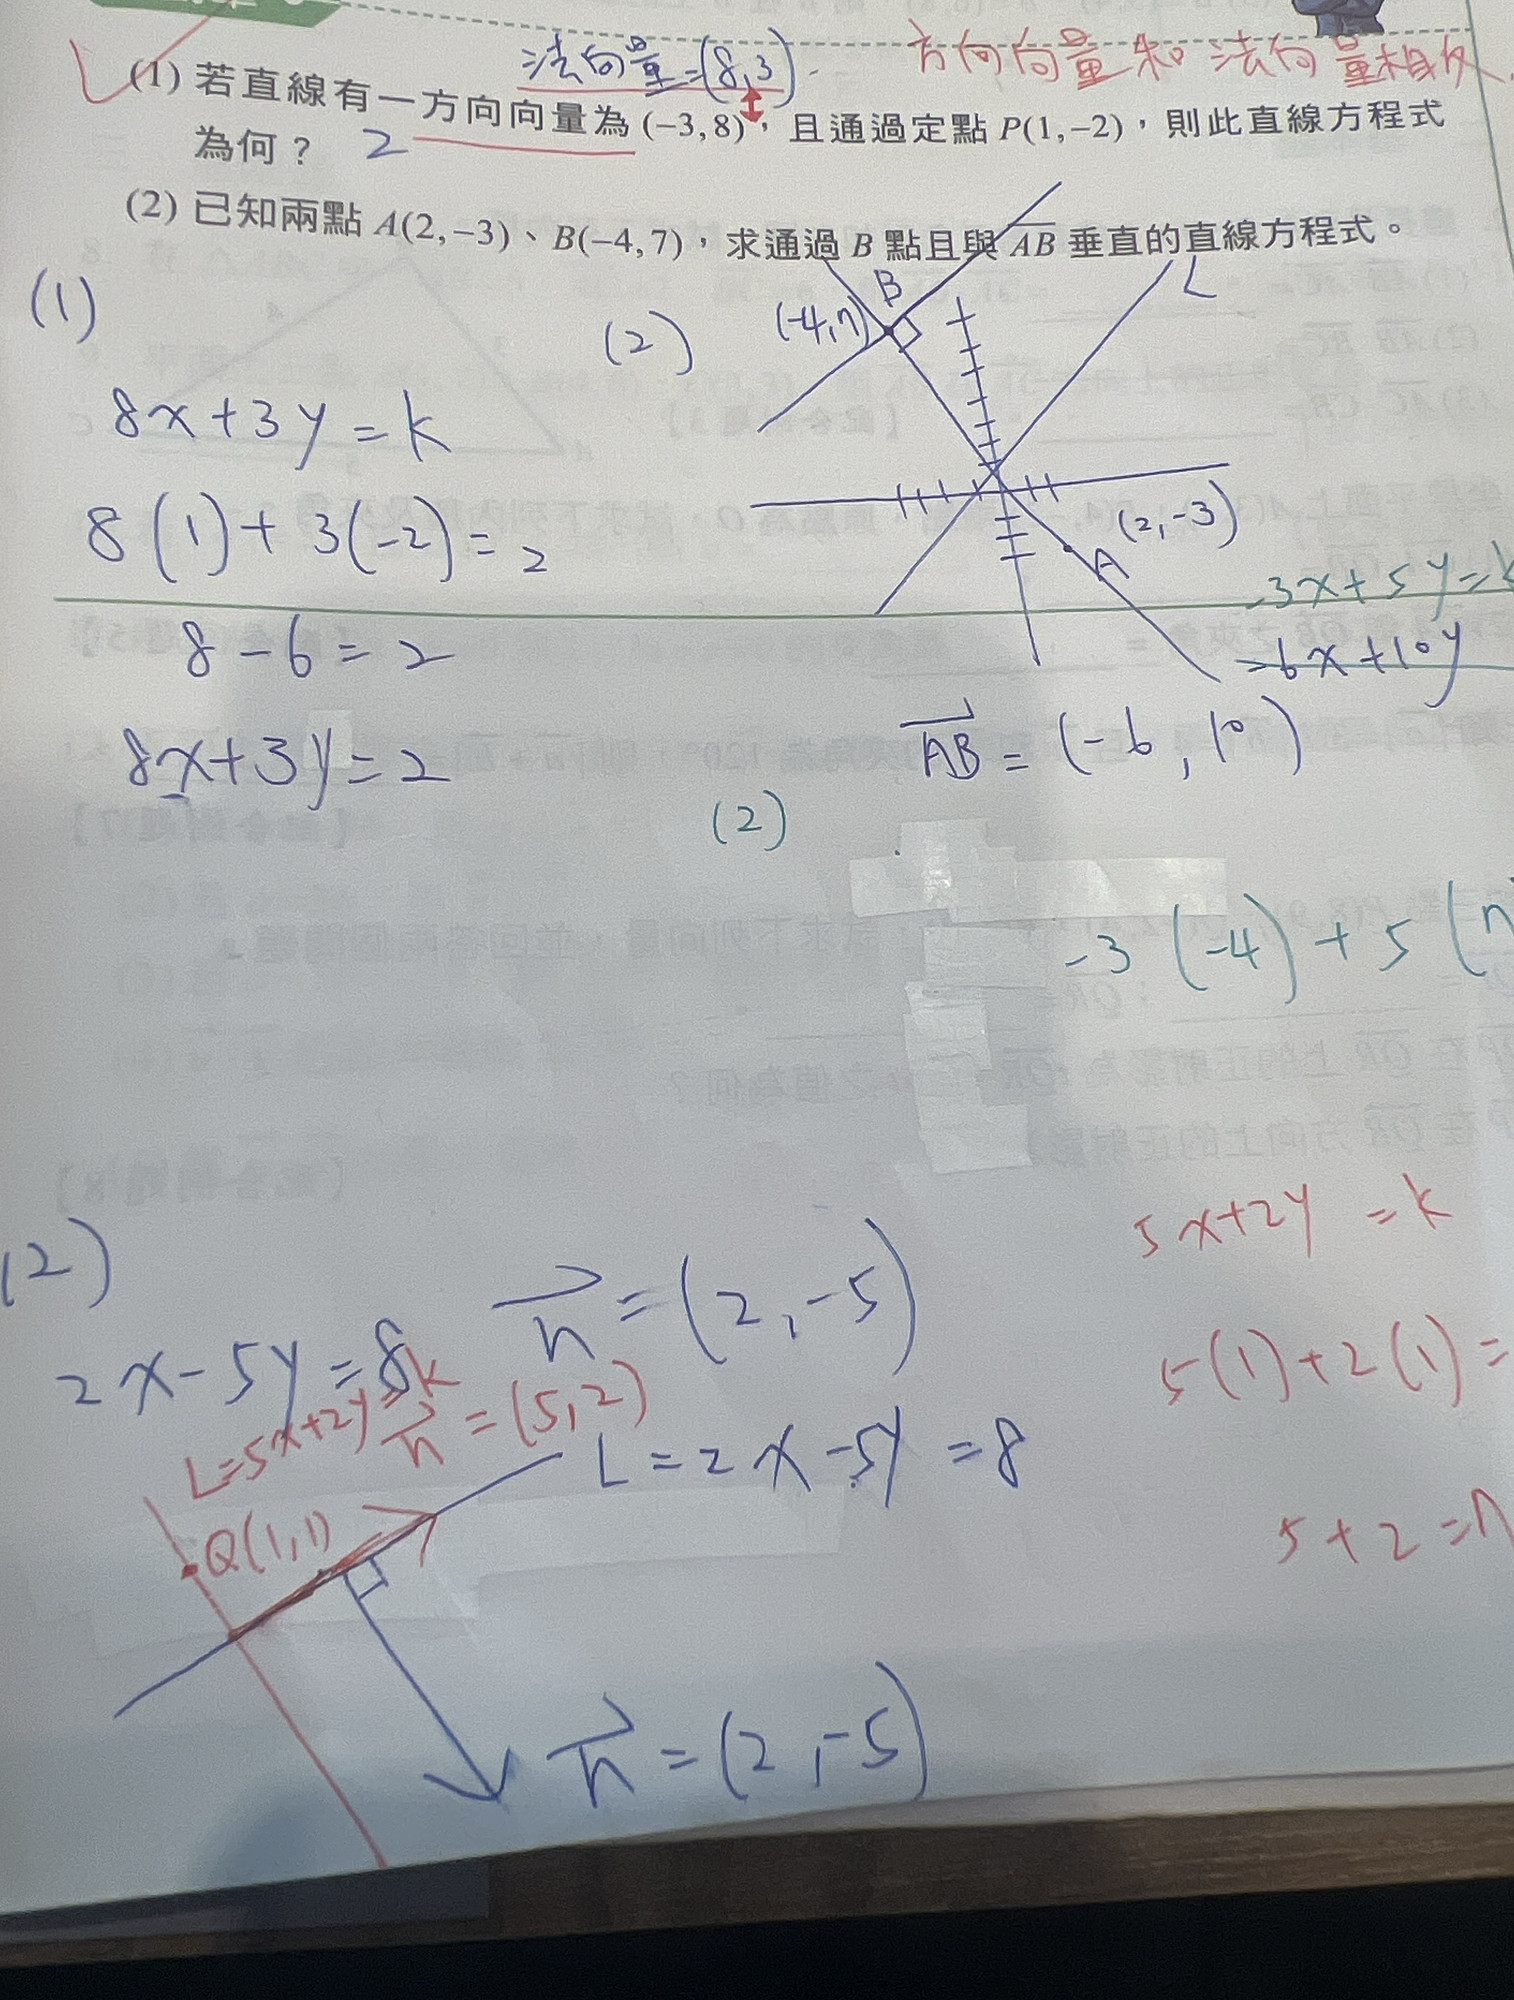 法向量=(8,3)
方向向量和法向量相反.
(1) 若直線有一方向向量為 (−3,8)，且通過定點 P(1,−2)，則此直線方程式
為何？ 2
(2) 已知兩點 A(2,−3)、B(−4,7)，求通過 B 點且與 AB 垂直的直線方程式。
(1)
8x+3y=k
8(1)+3(-2)=2
8-6=2
8x+3y=2
(2)
B
(-4,7)
L
(2,-3)
A
-3x+5y=k
-6x+10y
AB=(-6,10)
(2)
-3(-4)+5(7
5x+2y=k
5(1)+2(1)=
5+2=7
(2)
n=(2,-5)
2x-5y=8k
L=5x+2y=k
n=(5,2)
L=2x-5y=8
Q(1,1)
n=(2,-5)